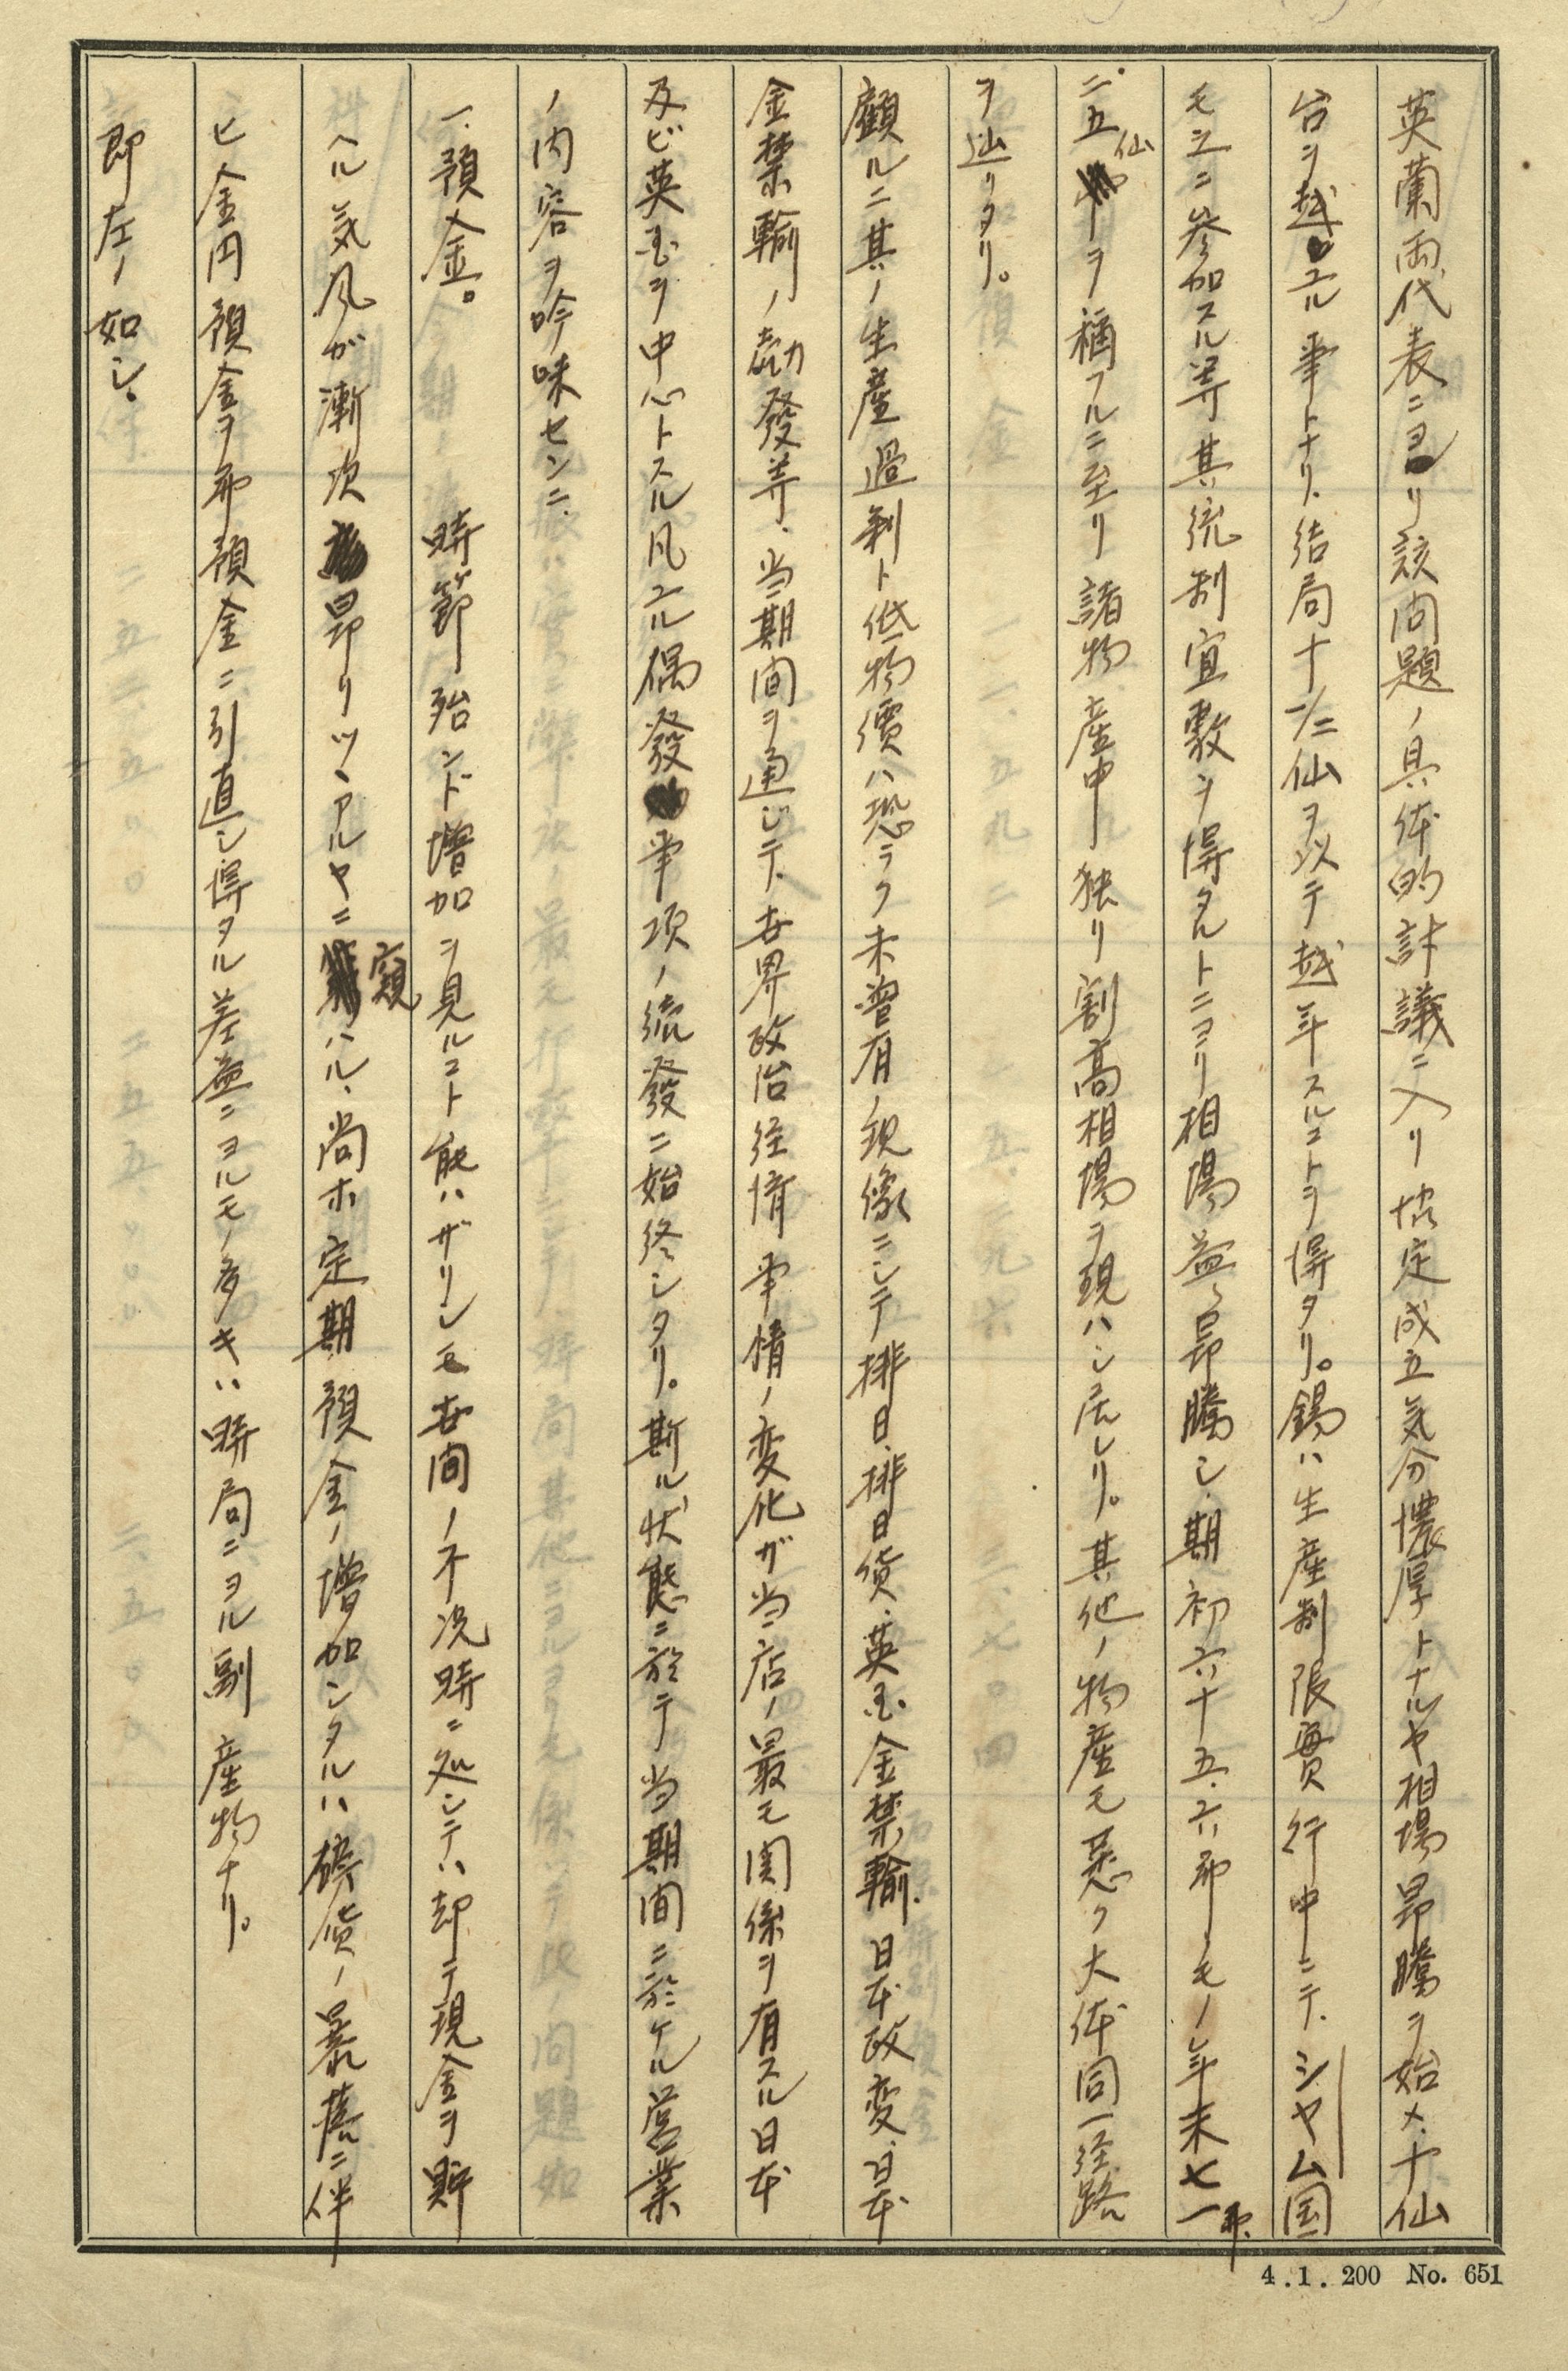 英蘭両代表ニヨリ該問題ノ具体的計議ニ入リ協定成立気分濃厚トナルヤ相場昂騰ヲ始メ、十仙
台ヲ越ユル事トナリ、結局十一/二仙ヲ以テ越年スルコトヲ得タリ。錫ハ生産制限実行中ニテ、シヤム国
モ之ニ参加スル等其統制宜敷ヲ得タルトニヨリ相場益々昂騰シ、期初六十五、六弗ノモノ年末七一弗、
二五仙ヲ称フルニ至リ諸物産中独リ割高相場ヲ現ハシ居レリ。其他ノ物産モ悪ク大体同一経路
ヲ辿リタリ。
顧ルニ其ノ生産過剰ト低物價ハ恐ラク未曽有ノ現像ニシテ排日、排日貨、英国金禁輸、日本政変、日本
金禁輸ノ勃發等、当期間ヲ通ジテ、世界政治経済事情ノ変化ガ当店ノ最モ関係ヲ有スル日本
及ビ英国ヲ中心トスル凡ユル偶發事項ノ続發ニ始終シタリ。斯ル状態ニ於テ当期間ニ於ケル営業
ノ内容ヲ吟味センニ、
一、預金。 時節殆ンド増加ヲ見ルコト能ハザリシモ世間ノ不況時ニ処シテハ却テ現金ヲ貯
ヘル気風が漸次昂リツヽアルヤニ窺ハル、尚ホ定期預金ノ増加シタルハ磅貨ノ暴落ニ伴
ヒ金円預金ヲ弗預金ニ引直シ得タル差益ニヨルモノ多キハ時局ニヨル副産物ナリ。
即左ノ如シ、
4.1.200 No. 651